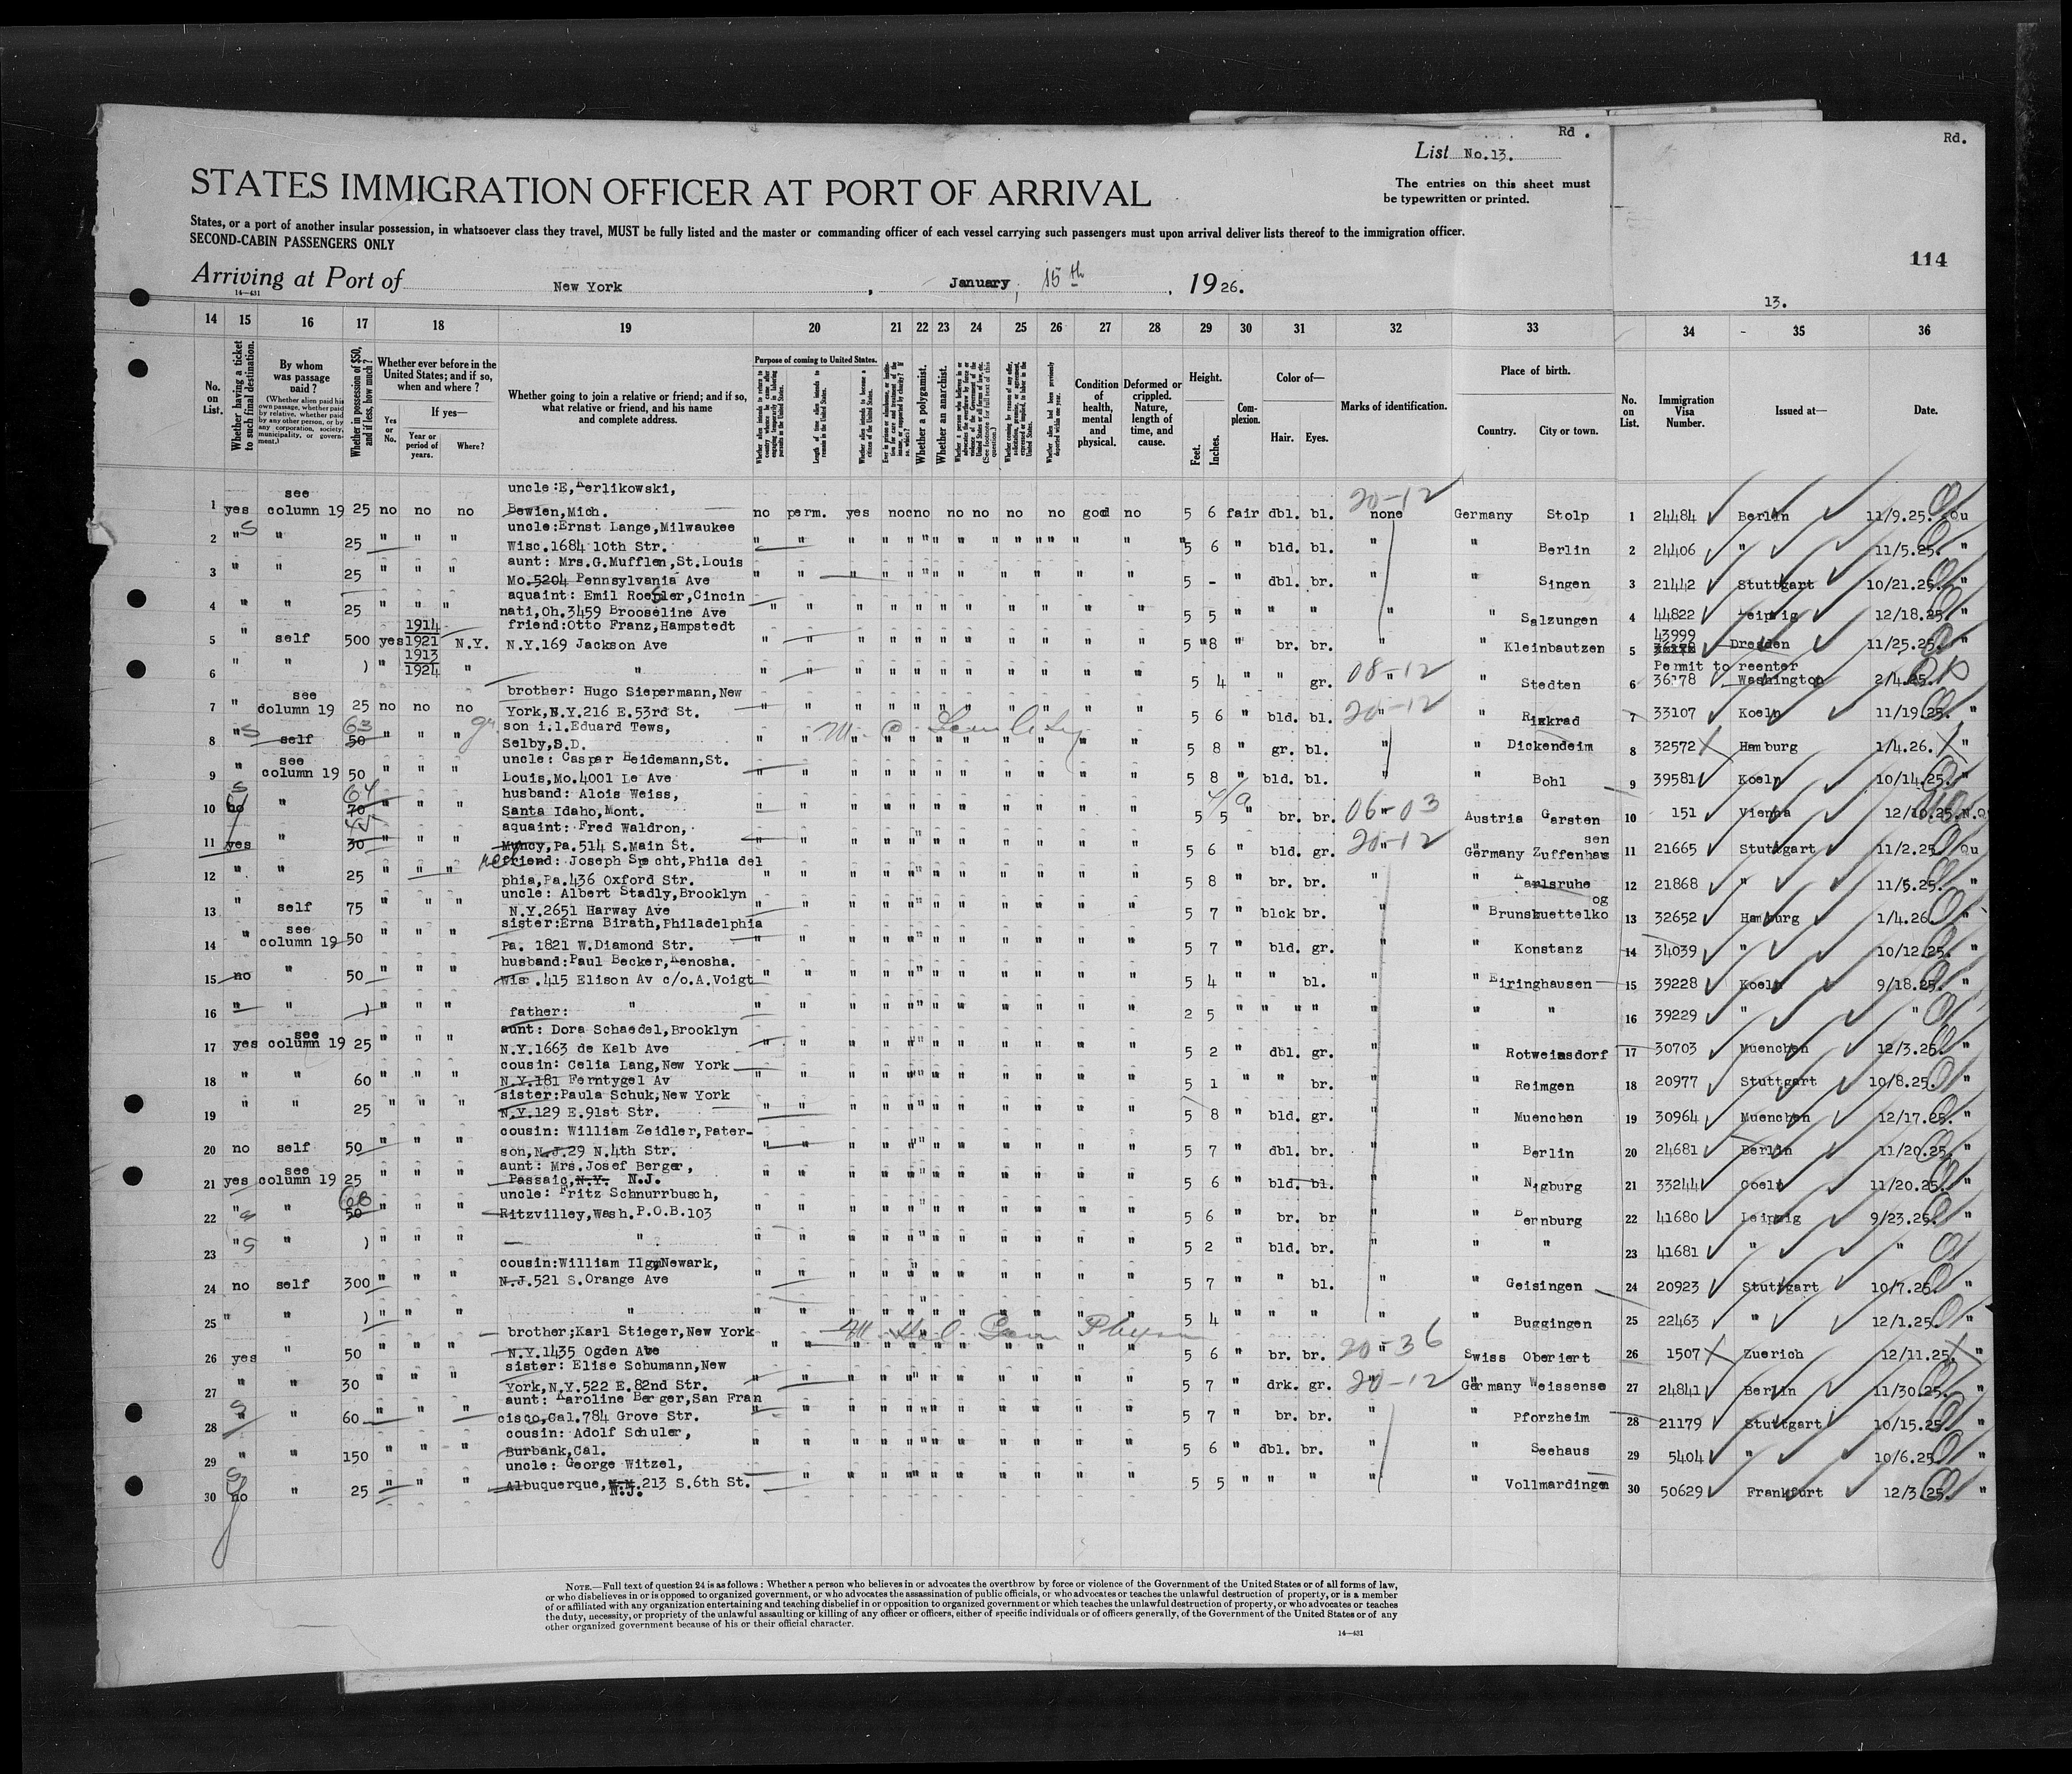 Rd.
Rd.
List No.13.
STATES IMMIGRATION OFFICER AT PORT OF ARRIVAL
The entries on this sheet must
be typewritten or printed.
States, or a port of another insular possession, in whatsoever class they travel, MUST be fully listed and the master or commanding officer of each vessel carrying such passengers must upon arrival deliver lists thereof to the immigration officer.
SECOND-CABIN PASSENGERS ONLY
114
Arriving at Port of New York, January, 15th, 1926.
14—431
13.
14 15 16 17 18 19 20 21 22 23 24 25 26 27 28 29 30 31 32 33 34 35 36
No. on List.
Whether having a ticket to such final destination.
By whom was passage paid?
(Whether alien paid his own passage, whether paid by relative, whether paid by any other person, or by any corporation, society, municipality, or government.)
Whether in possession of $50, and if less, how much?
Whether ever before in the United States; and if so, when and where?
Yes or No.
If yes—
Year or period of years.
Where?
Whether going to join a relative or friend; and if so, what relative or friend, and his name and complete address.
Purpose of coming to United States.
Whether a polygamist.
Whether an anarchist.
Condition of health, mental and physical.
Deformed or crippled. Nature, length of time, and cause.
Height.
Feet. Inches.
Complexion.
Color of—
Hair. Eyes.
Marks of identification.
Place of birth.
Country. City or town.
No. on List.
Immigration Visa Number.
Issued at—
Date.
uncle:E,Kerlikowski,
1 yes see column 19 25 no no no Bewien,Mich. no perm. yes no no no no no no no good no 5 6 fair dbl. bl. none Germany Stolp 1 24484 Berlin 11/9.25. Qu
20-12
uncle:Ernst Lange,Milwaukee
2 " " 25 " " " Wisc.1684 10th Str. 5 6 " bld. bl. " " Berlin 2 24406 " 11/5.25. "
aunt: Mrs.G.Mufflen,St.Louis
3 " " 25 " " " Mo.5204 Pennsylvania Ave 5 - " dbl. br. " " Singen 3 21442 Stuttgart 10/21.25. "
aquaint: Emil Roesler,Cincin
4 " " 25 " " " nati,Oh.3459 Brooseline Ave 5 5 " " " " " Salzungen 4 44822 Leipzig 12/18.25. "
friend:Otto Franz,Hampstedt
5 " self 500 yes 1914 1921 N.Y. N.Y.169 Jackson Ave 5 8 " br. br. " " Kleinbautzen 5 43999 Dresden 11/25.25. "
Permit to reenter
6 " " ) " 1913 1924 " " 5 4 " " gr. " " Stedten 6 36178 Washington 2/4.25.
08-12
brother: Hugo Siepermann,New
7 " see column 19 25 no no no York,N.Y.216 E.53rd St. 5 6 " bld. bl. " " 7 33107 Koeln 11/19.25. "
20-12
son i.l.Eduard Tews,
8 " self 50 63 " " " Selby,S.D. 5 8 " gr. bl. " " Dickendeim 8 32572 Hamburg 1/4.26. "
uncle: Caspar Heidemann,St.
9 " see column 19 50 " " " Louis,Mo.4001 Le Ave 5 8 " bld. bl. " " Bohl 9 39581 Koeln 10/14.25. "
husband: Alois Weiss,
10 no " 70 64 " " " Santa Idaho,Mont. 5 5 " br. br. " Austria Garsten 10 151 Vienna 12/10.25.
06-03
aquaint: Fred Waldron,
11 yes " 30 45 " " " Muncy,Pa.514 S.Main St. 5 6 " bld. gr. " Germany Zuffenhausen 11 21665 Stuttgart 11/2.25. Qu
20-12
friend: Joseph Specht,Phila del
12 " " 25 " " " phia,Pa.436 Oxford Str. 5 8 " br. br. " " Karlsruhe 12 21868 " 11/5.25. "
uncle: Albert Stadly,Brooklyn
13 " self 75 " " " N.Y.2651 Harway Ave 5 7 " blck br. " " Brunsbuettelkoog 13 32652 Hamburg 1/4.26. "
sister:Erna Birath,Philadelphia
14 " see column 19 50 " " " Pa. 1821 W.Diamond Str. 5 7 " bld. gr. " " Konstanz 14 34039 " 10/12.25. "
husband:Paul Becker,Kenosha.
15 no " 50 " " " Wis .415 Elison Av c/o.A.Voigt 5 4 " " bl. " " Eiringhausen 15 39228 Koeln 9/18.25. "
16 " " ) " " " father: " 2 5 " " " " " " " 16 39229 " "
aunt: Dora Schaedel,Brooklyn
17 yes see column 19 25 " " " N.Y.1663 de Kalb Ave 5 2 " dbl. gr. " " Rotweinsdorf 17 30703 Muenchen 12/3.25. "
cousin: Celia Lang,New York
18 " " 60 " " " N.Y.181 Ferntygel Av 5 1 " " br. " " Reimgen 18 20977 Stuttgart 10/8.25. "
sister:Paula Schuk,New York
19 " " 25 " " " N.Y.129 E.91st Str. 5 8 " bld. gr. " " Muenchen 19 30964 Muenchen 12/17.25. "
cousin: William Zeidler,Pater-
20 no self 50 " " " son,N.J.29 N.4th Str. 5 7 " dbl. br. " " Berlin 20 24681 Berlin 11/20.25. "
aunt: Mrs.Josef Berger,
21 yes see column 19 25 " " " Passaic,N.Y. N.J. 5 6 " bld. bl. " " Nigburg 21 33244 Coeln 11/20.25. "
uncle: Fritz Schnurrbusch,
22 " " 50 68 " " " Ritzvilley,Wash.P.O.B.103 5 6 " br. br " " Bernburg 22 41680 Leipzig 9/23.25. "
23 " " ) " " " " 5 2 " bld. br. " " " 23 41681 " "
cousin:William Ilgen,Newark,
24 no self 300 " " " N.J.521 S.Orange Ave 5 7 " " bl. " " Geisingen 24 20923 Stuttgart 10/7.25. "
25 " " ) " " " " 5 4 " " " " Buggingen 25 22463 " 12/1.25. "
brother;Karl Stieger,New York
26 yes " 50 " " " N.Y.1435 Ogden Ave 5 6 " br. br. " Swiss Oberiert 26 1507 Zuerich 12/11.25. "
20-36
sister: Elise Schumann,New
27 " " 30 " " " York,N.Y.522 E.82nd Str. 5 7 " drk. gr. " Germany Weissense 27 24841 Berlin 11/30.25. "
20-12
aunt: Karoline Berger,San Fran
28 " " 60 " " " cisco,Cal.784 Grove Str. 5 7 " br. br. " Pforzheim 28 21179 Stuttgart 10/15.25. "
cousin: Adolf Schuler,
29 " " 150 " " " Burbank,Cal. 5 6 " dbl. br. " " Seehaus 29 5404 " 10/6.25. "
uncle: George Witzel,
30 no " 25 " " " Albuquerque,N.M.213 S.6th St. 5 5 " " " " " Vollmardingen 30 50629 Frankfurt 12/3.25. "
N.J.
NOTE.—Full text of question 24 is as follows: Whether a person who believes in or advocates the overthrow by force or violence of the Government of the United States or of all forms of law,
or who disbelieves in or is opposed to organized government, or who advocates the assassination of public officials, or who advocates or teaches the unlawful destruction of property, or is a member
of or affiliated with any organization entertaining and teaching disbelief in or opposition to organized government or which teaches the unlawful destruction of property, or who advocates or teaches
the duty, necessity, or propriety of the unlawful assaulting or killing of any officer or officers, either of specific individuals or of officers generally, of the Government of the United States or of any
other organized government because of his or their official character.
14—431